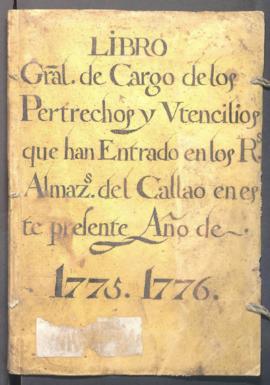 LIBRO
Grãl. de Cargo de los
Pertrechos y Vtencilios
que han Entrado en los Rs.
Almazs. del Callao en es
te presente Año de ~.
1775. 1776.